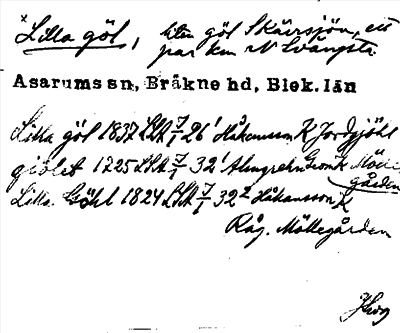 *Lilla göl, liten göl Skärsjön, ett
par km N Svängsta.
Asarums sn, Bräkne hd, Blek. län
Lilla göl 1837 LSA J/1 26¹ Håkansson K Jordgjöhl
giölet 1725 LSA J/1 32¹ Almgrehn Geom K Mölle-
gården
Lilla Göhl 1824 LSA J/1 32² Håkansson K
Råg. Möllegården